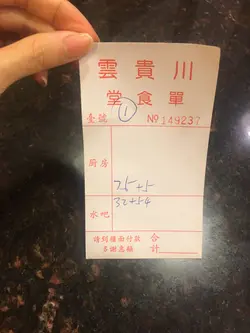 雲貴川
堂食單
臺號 ① № 149237
厨房
25+5
32+54
水吧
請到櫃面付款
多謝惠顧
合計